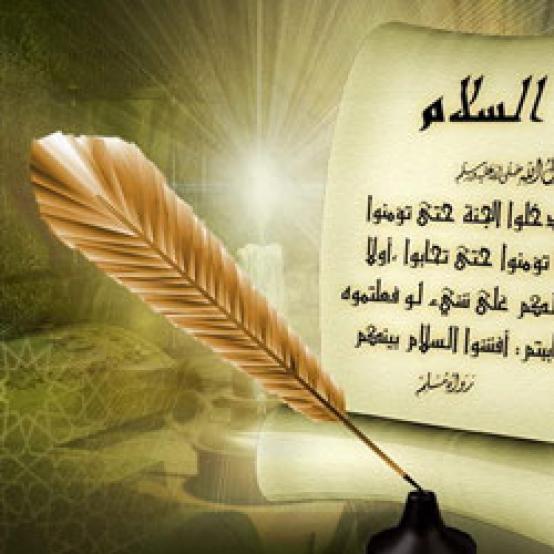 السلام
صلى الله عليه وسلم
الجنة حتى تؤمنوا
تؤمنوا حتى تحابوا ،أولا
على شيء لو فعلتموه
: أفشوا السلام بينكم
رواه مسلم